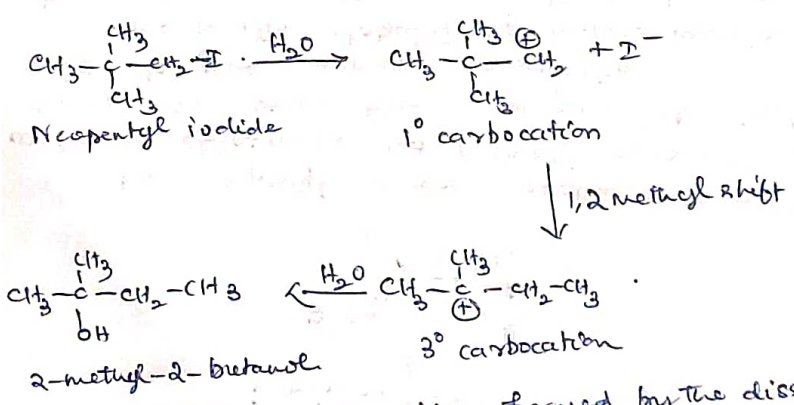 CH3 CH3 ⊕
CH3-C-CH2-I . H2O → CH3-C-CH2 + I⁻
CH3 CH3
Neopentyl iodide 1° carbocation
1,2 methyl shift
CH3 CH3
CH3-C-CH2-CH3 ← H2O CH3-C-CH2-CH3 .
OH ⊕
2-methyl-2-butanol 3° carbocation
formed by the diss